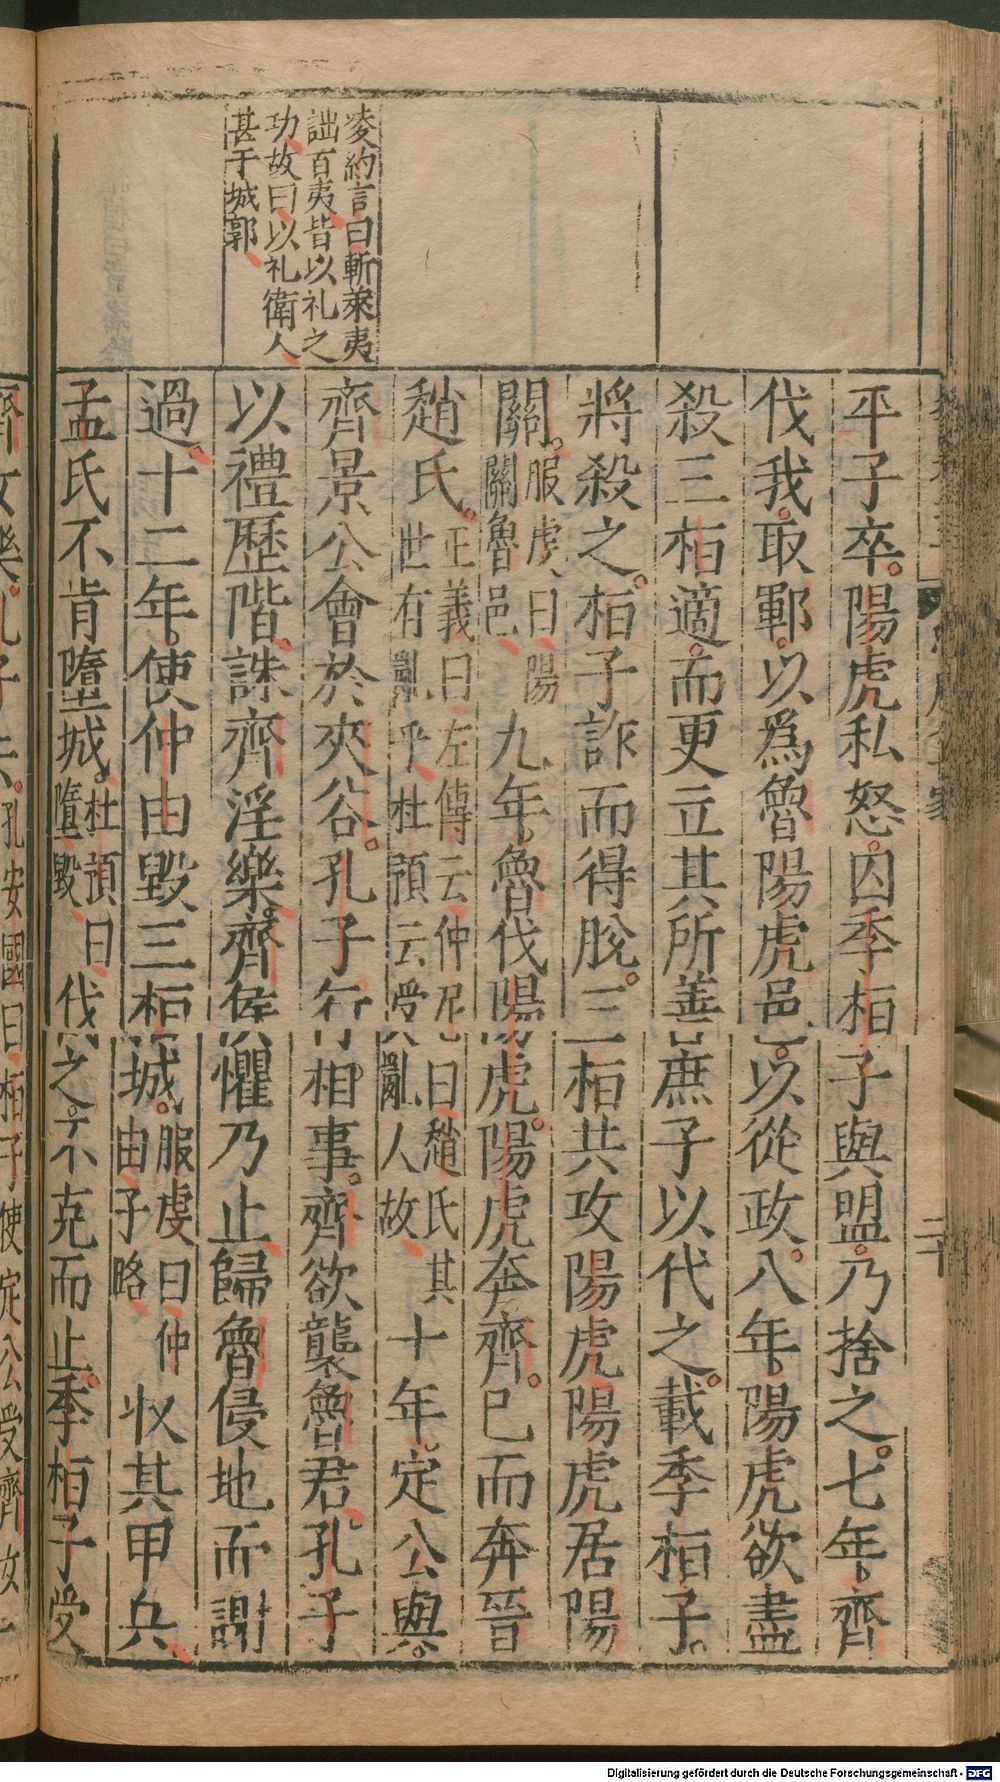 凌約言曰斬萊夷
詘百夷皆以礼之
功故曰以礼衛人
甚于城郭
平子卒陽虎私怒囚季桓子與盟乃捨之七年齊
伐我取鄆以爲魯陽虎邑以從政八年陽虎欲盡
殺三桓適而更立其所善庶子以代之載季桓子
將殺之桓子詐而得脫三桓共攻陽虎陽虎居陽
關服虔曰陽關魯邑九年魯伐陽虎陽虎奔齊已而奔晉
趙氏正義曰左傳云仲尼曰趙氏其世有亂乎杜預云受亂人故十年定公與
齊景公會於夾谷孔子行相事齊欲襲魯君孔子
以禮歷階誅齊淫樂齊侯懼乃止歸魯侵地而謝
過十二年使仲由毀三桓城服虔曰仲由子路收其甲兵
孟氏不肯墮城杜預曰墮毀伐之不克而止季桓子受
齊女樂孔子去孔安國曰桓子使定公受齊女
二十
Digitalisierung gefördert durch die Deutsche Forschungsgemeinschaft - DFG